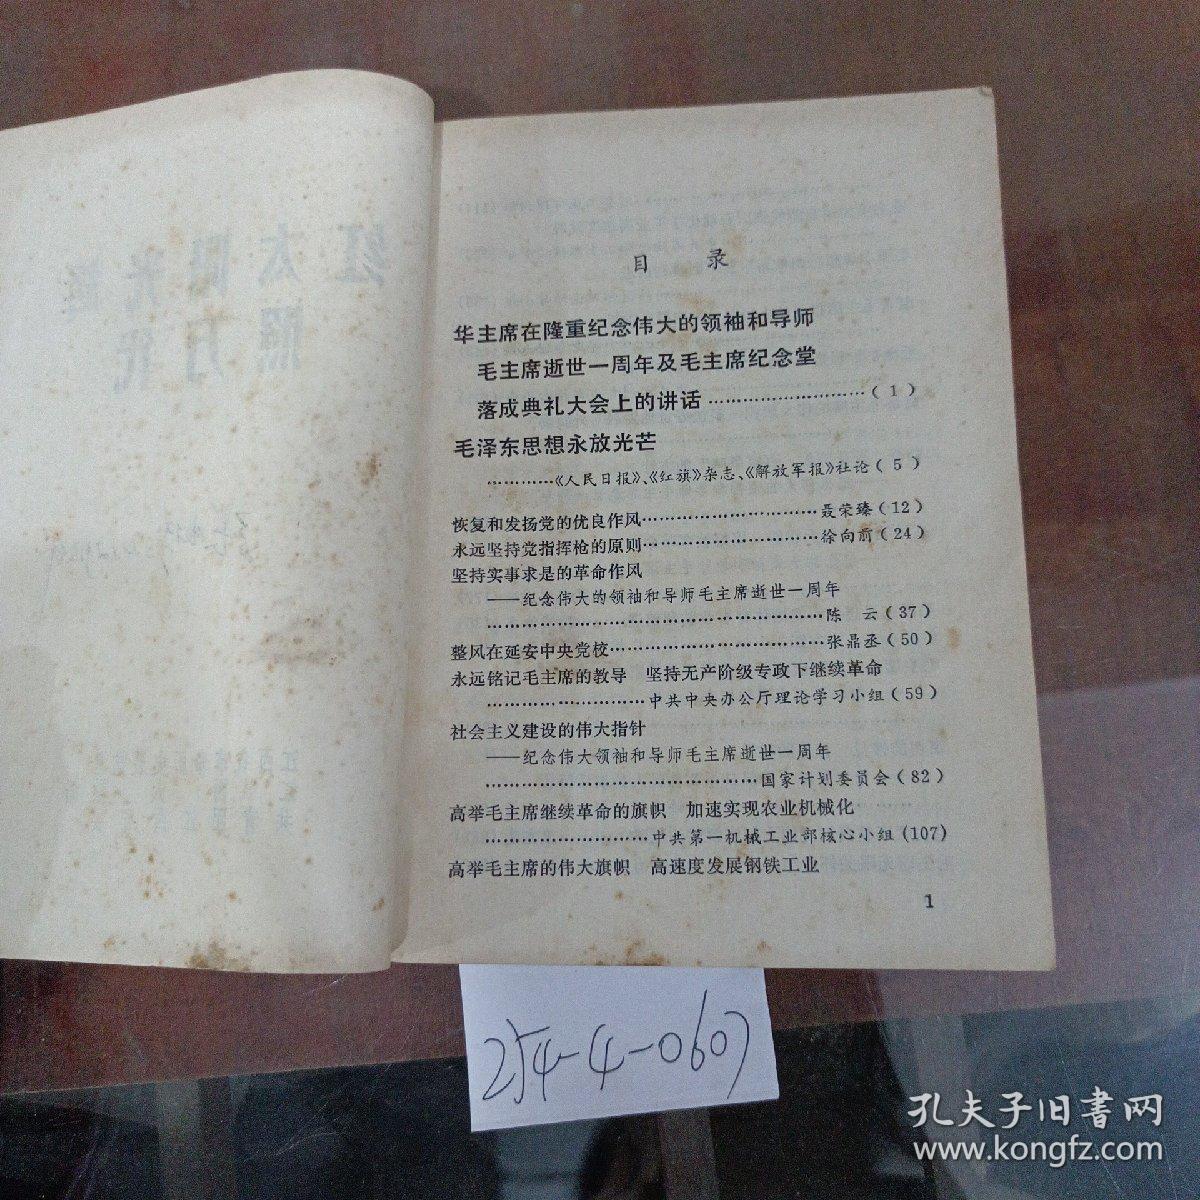 目 录
华主席在隆重纪念伟大的领袖和导师
毛主席逝世一周年及毛主席纪念堂
落成典礼大会上的讲话…………………………(1)
毛泽东思想永放光芒
…………《人民日报》、《红旗》杂志、《解放军报》社论(5)
恢复和发扬党的优良作风…………………………聂荣臻(12)
永远坚持党指挥枪的原则…………………………徐向前(24)
坚持实事求是的革命作风
——纪念伟大的领袖和导师毛主席逝世一周年
…………………………………………………陈 云(37)
整风在延安中央党校………………………………张鼎丞(50)
永远铭记毛主席的教导 坚持无产阶级专政下继续革命
………………………中共中央办公厅理论学习小组(59)
社会主义建设的伟大指针
——纪念伟大领袖和导师毛主席逝世一周年
…………………………………………国家计划委员会(82)
高举毛主席继续革命的旗帜 加速实现农业机械化
…………………………中共第一机械工业部核心小组(107)
高举毛主席的伟大旗帜 高速度发展钢铁工业
1
红太阳光辉
照万代
254-4-0607
孔夫子旧书网
www.kongfz.com